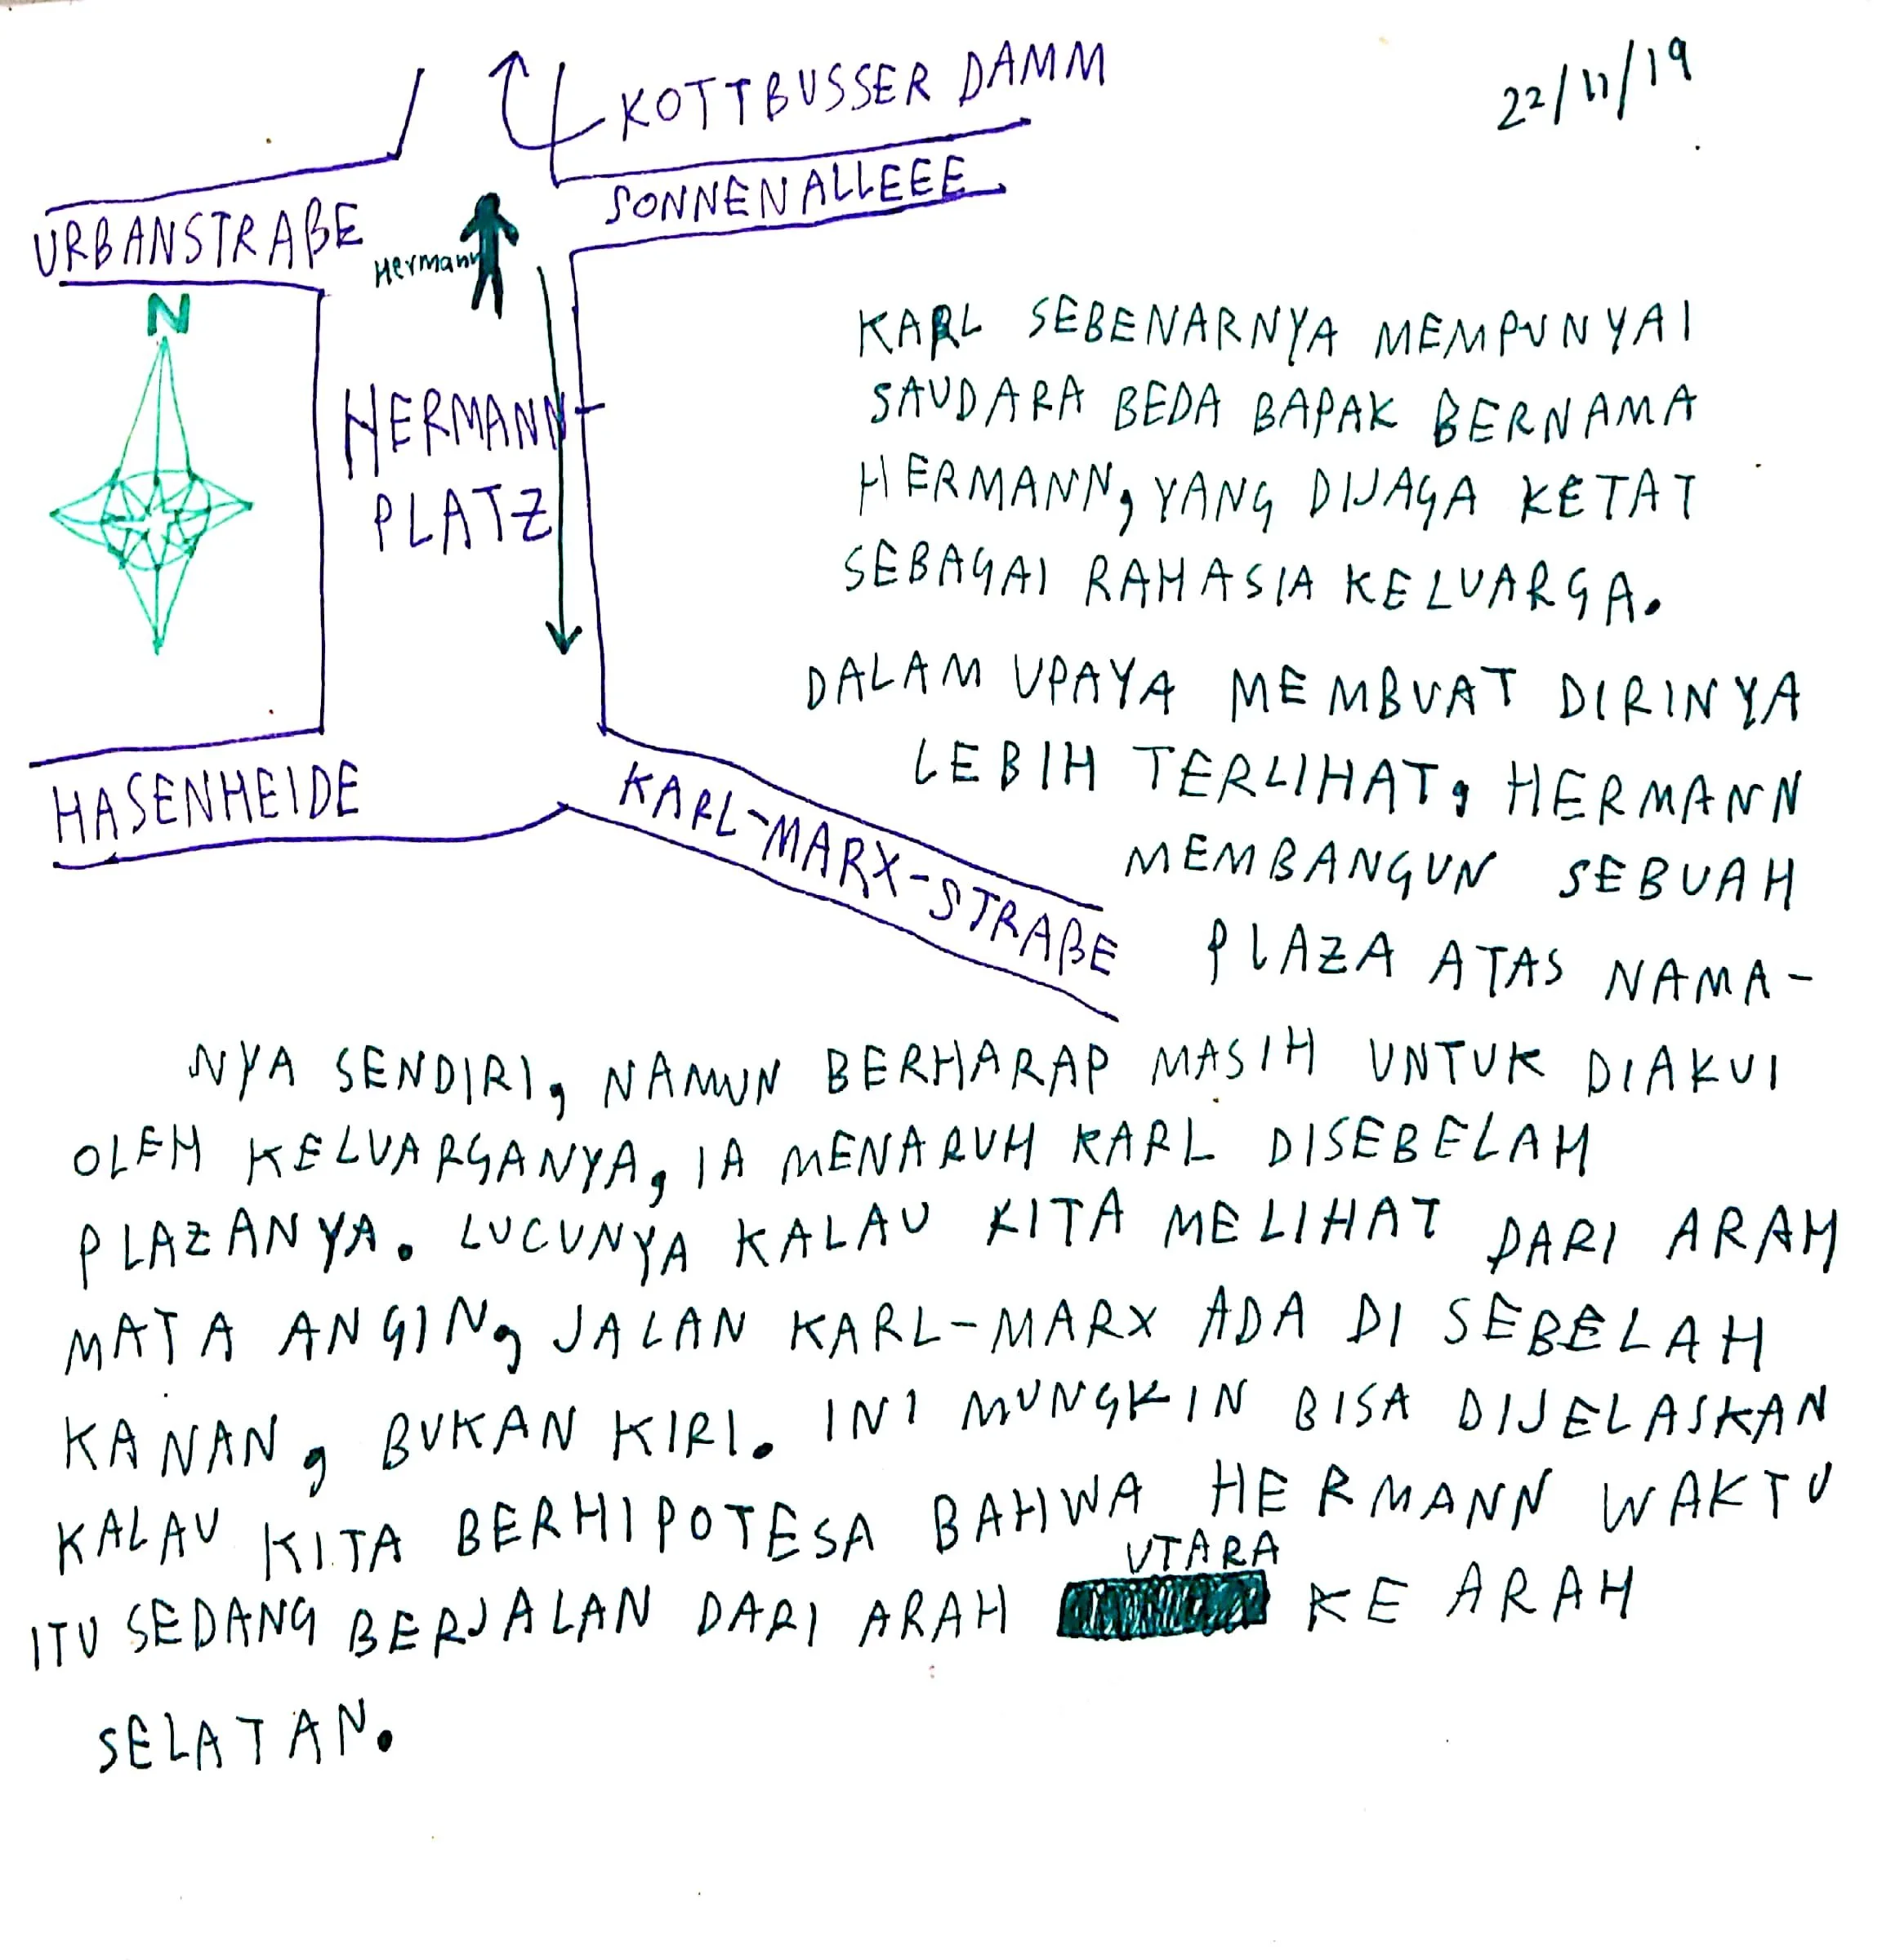 22/11/19
KOTTBUSSER DAMM
SONNENALLEEE
URBANSTRAßE
Hermann
N
HERMANN-
PLATZ
HASENHEIDE
KARL-MARX-STRAßE
KARL SEBENARNYA MEMPUNYAI
SAUDARA BEDA BAPAK BERNAMA
HERMANN, YANG DIJAGA KETAT
SEBAGAI RAHASIA KELUARGA.
DALAM UPAYA MEMBUAT DIRINYA
LEBIH TERLIHAT, HERMANN
MEMBANGUN SEBUAH
PLAZA ATAS NAMA-
NYA SENDIRI, NAMUN BERHARAP MASIH UNTUK DIAKUI
OLEH KELUARGANYA, IA MENARUH KARL DISEBELAH
PLAZANYA. LUCUNYA KALAU KITA MELIHAT DARI ARAH
MATA ANGIN, JALAN KARL-MARX ADA DI SEBELAH
KANAN, BUKAN KIRI. INI MUNGKIN BISA DIJELASKAN
KALAU KITA BERHIPOTESA BAHWA HERMANN WAKTU
ITU SEDANG BERJALAN DARI ARAH UTARA KE ARAH
SELATAN.